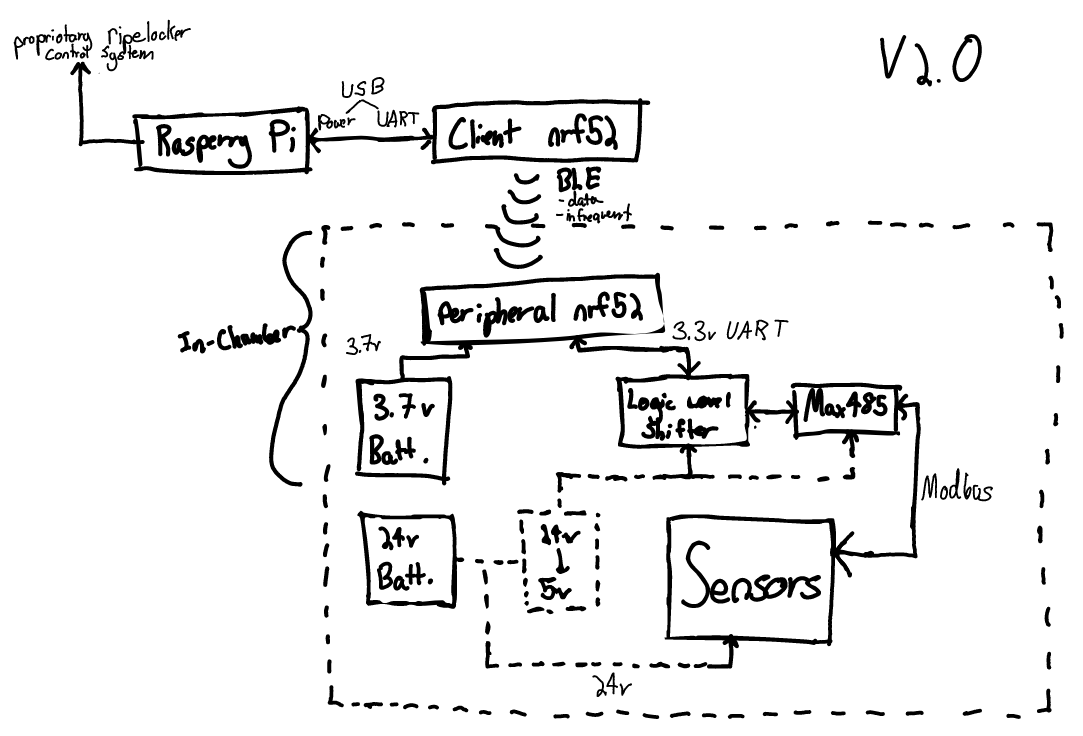 propriotary ripelocker
control system
V2.0
USB
Power UART
Rasperry Pi
Client nrf52
BLE
- data
- infrequent
In-Chamber
Peripheral nrf52
3.7v
3.3v UART
3.7v
Batt.
Logic Level
Shifter
Max485
Modbus
24v
Batt.
24v
5v
Sensors
24v